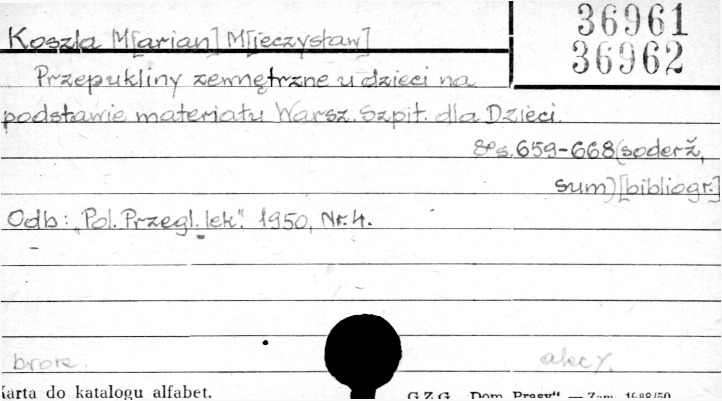 36961
36962
Koszla M[arian] M[ieczysław]
Przepukliny zewnętrzne u dzieci na
podstawie materiału Warsz. Szpit. dla Dzieci.
8° s. 659-668 (soderž,
sum) [bibliogr.]
Odb: "Pol. Przegl. lek". 1950, Nr. 4.
brosz. akc Y.
Karta do katalogu alfabet. G.Z.G. „Dom Prasy" — Zam. 1688/50